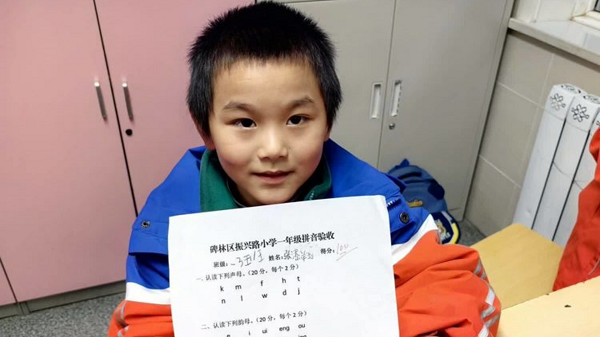 碑林区振兴路小学一年级拼音验收
班级: 姓名: 得分: 100
一、认读下列声母。(20分，每个2分)
k m f h t
n l w d j
二、认读下列韵母。(20分，每个2分)
i ui eng ou